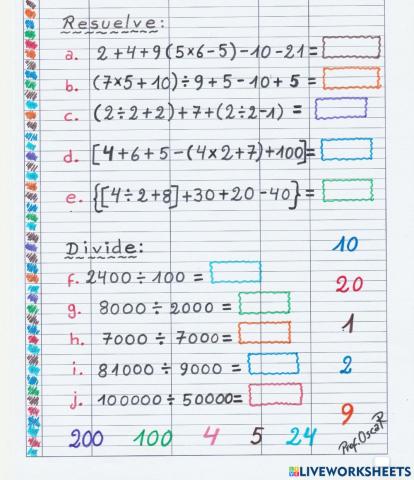 Resuelve:
a. 2+4+9(5×6-5)-10-21=
b. (7×5+10)÷9+5-10+5=
c. (2÷2+2)+7+(2÷2-1)=
d. [4+6+5-(4×2+7)+100]=
e. {[4÷2+8]+30+20-40}=
Divide:
10
f. 2400÷100=
20
g. 8000÷2000=
1
h. 7000÷7000=
2
i. 81000÷9000=
j. 100000÷50000=
9
200 100 4 5 24
Prof. Oscar R
LIVEWORKSHEETS